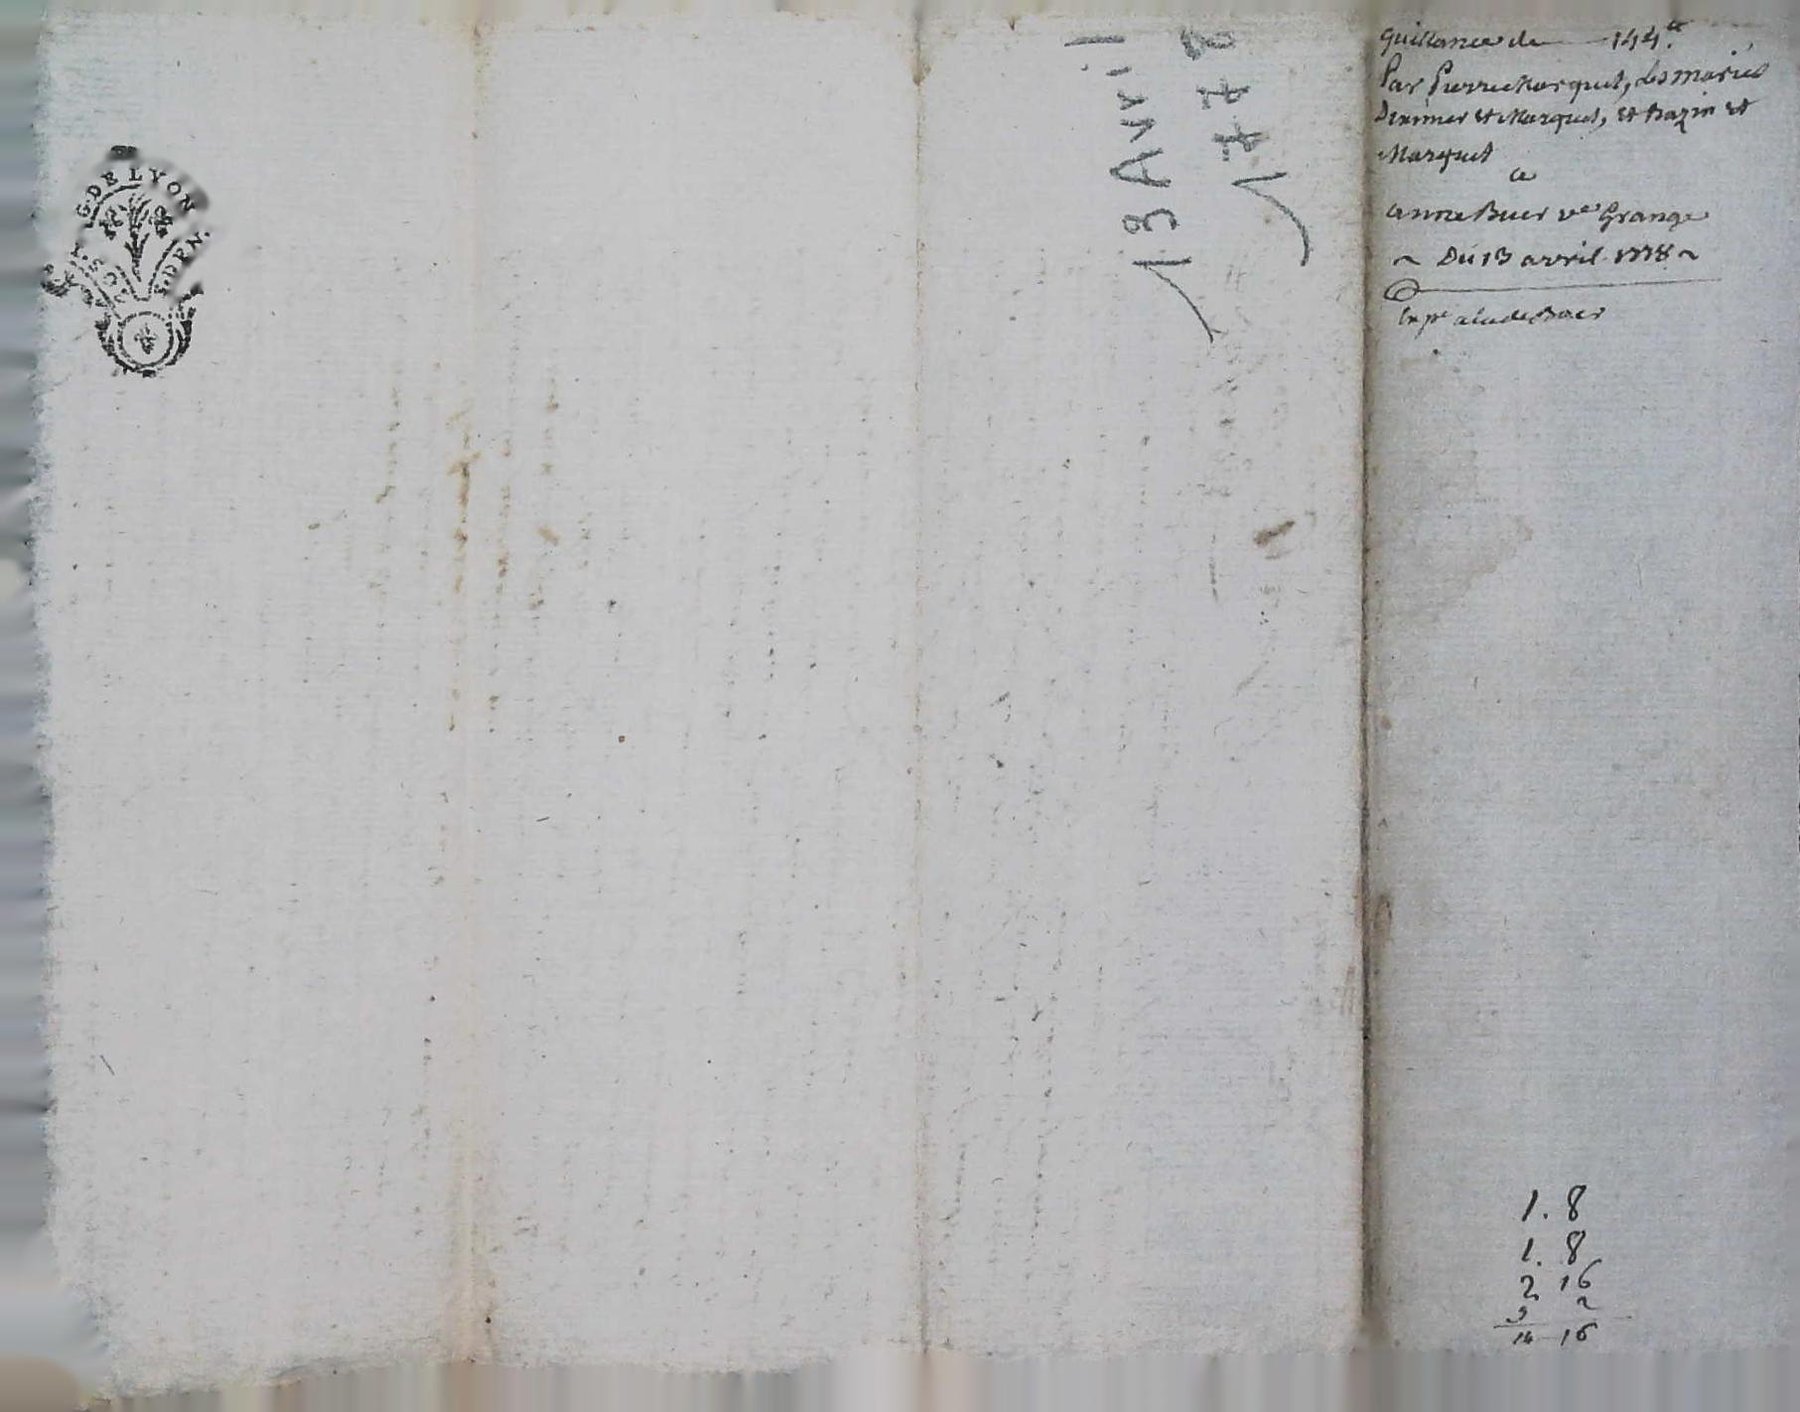 G. DE LYON
2 S.
DEN.
13 Avril
177
Quittance de 144.tt
Par Pierre Marquet, les mariés
et Marquet, et Bazin et
Marquet
a
anne Buer ve Grange
~ Du 13 avril 1778 ~
Exp.e a lad. Buer
1. 8
1. 8
2 16
9 2
14 16